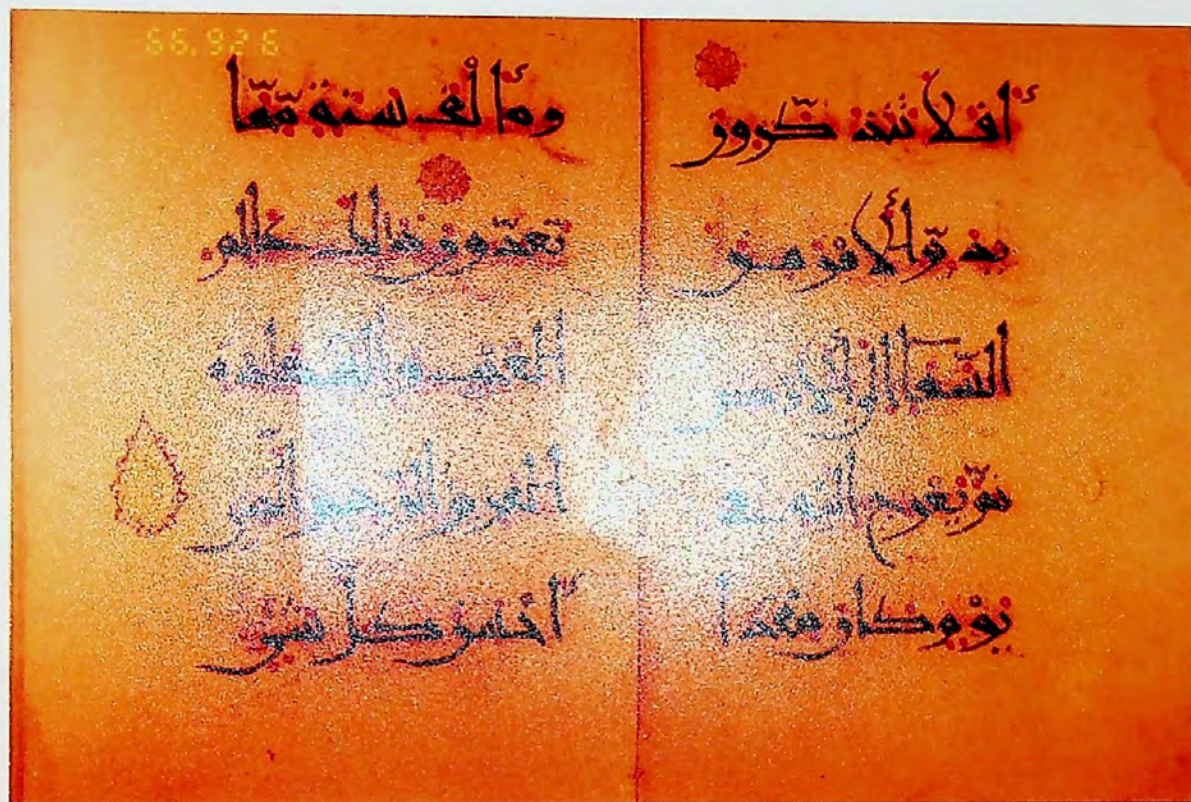 أفلا تتذكرون
يدبّر الأمر من
السّما إلى الأرض
ثمّ يعرج إليه
في يوم كان مقدا
ره ألف سنة ممّا
تعدّون ذلك علم
الغيب والشهدة
العزيز الرّحيم الّذي
أحسن كلّ شي